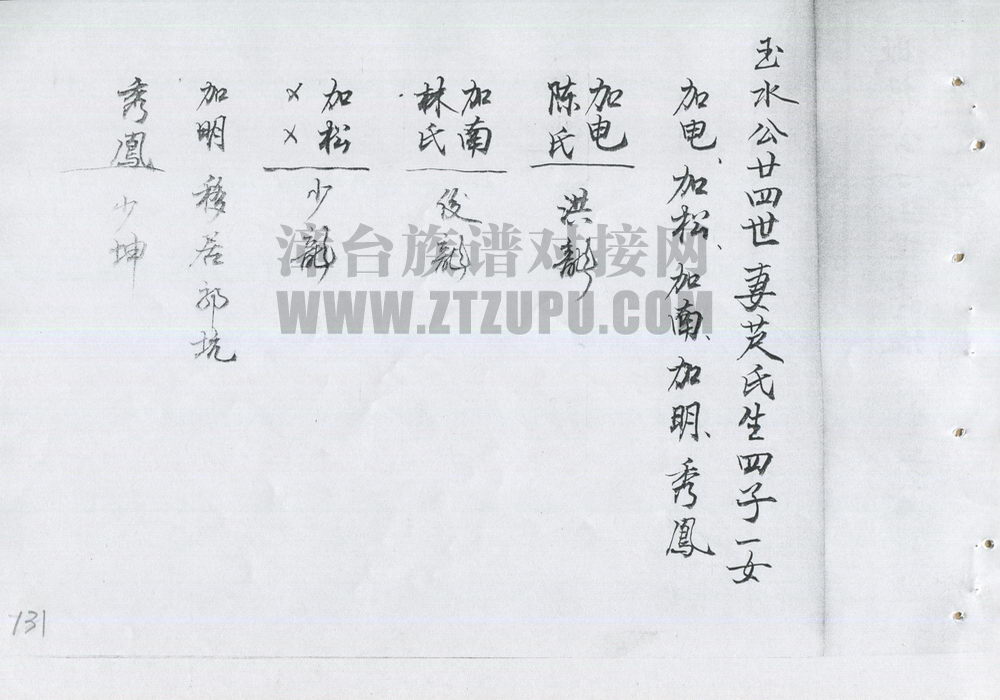 玉水公廿四世妻芡氏生四子一女
加电、加松、加南、加明、秀鳳
加电
陈氏
洪龍
加南
林氏
俊龍
加松
××
少龍
加明 移居郭坑
秀鳳
少坤
漳台族谱对接网
WWW.ZTZUPU.COM
131